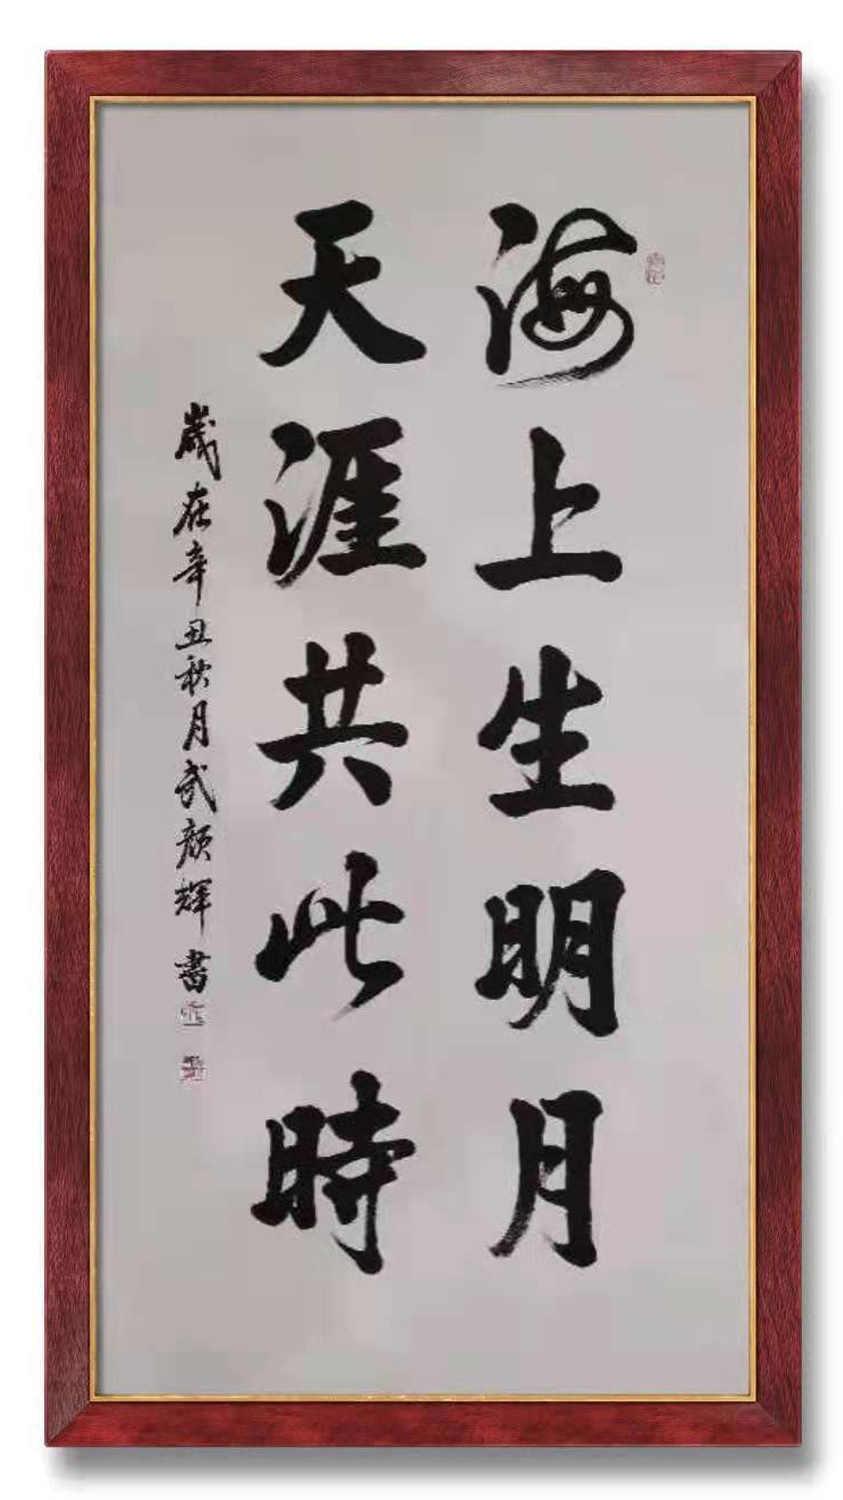 海上生明月
天涯共此時
歲在辛丑秋月武颜辉書